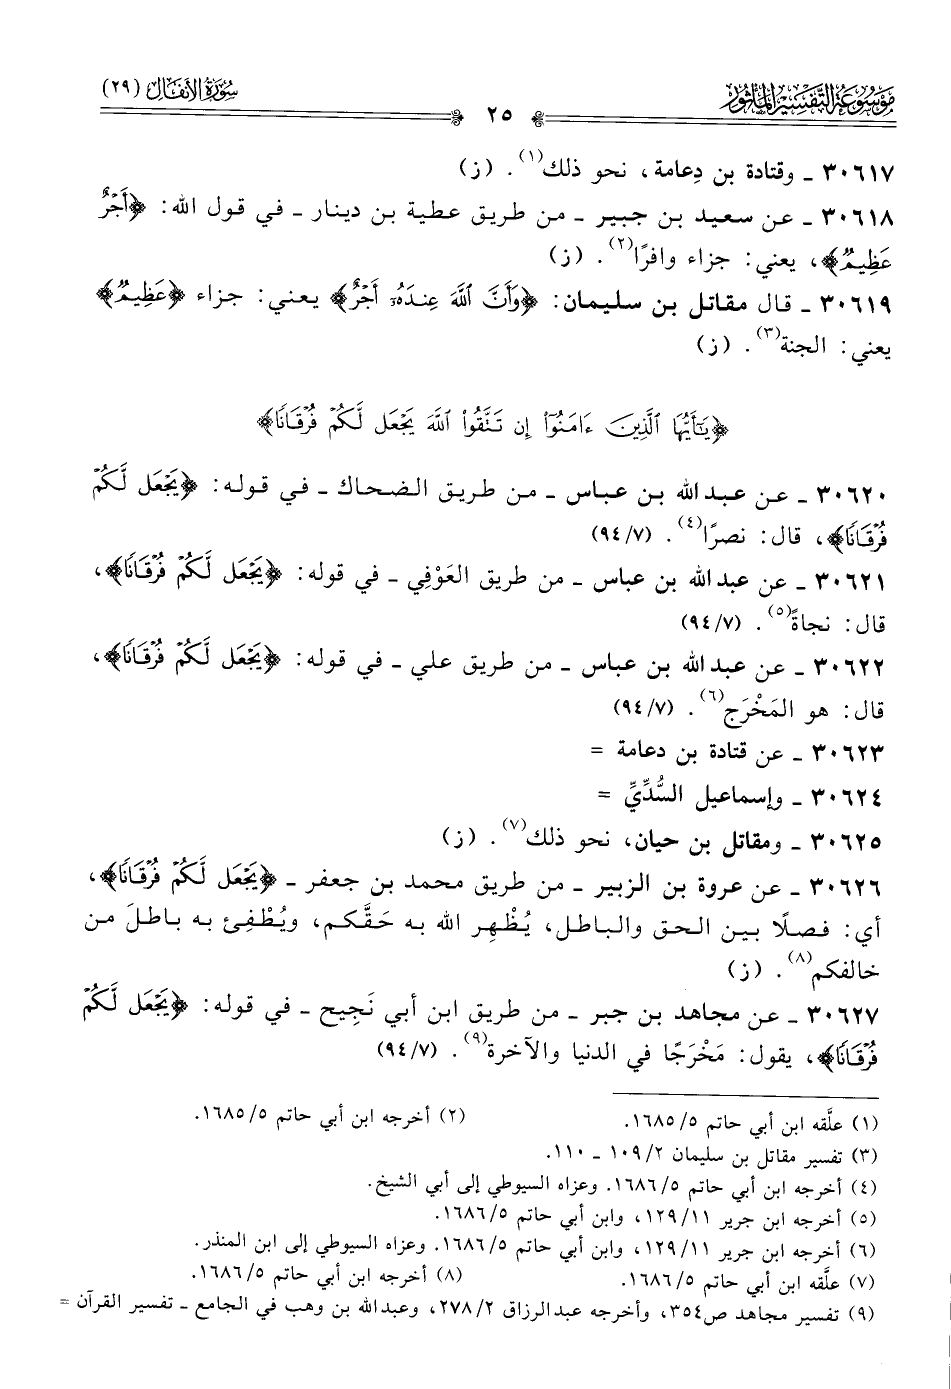 سُورَةُ الأَنفَال (٢٩)
٢٥
مَوْسُوعَة التَّفْسِير المَأْثُور
٣٠٦١٧ ـ وقتادة بن دِعامة، نحو ذلك(١). (ز)
٣٠٦١٨ ـ عن سعيد بن جبير ـ من طريق عطية بن دينار ـ في قول الله: ﴿أَجْرٌ
عَظِيمٌ﴾، يعني: جزاء وافرًا(٢). (ز)
٣٠٦١٩ ـ قال مقاتل بن سليمان: ﴿وَأَنَّ ٱللَّهَ عِندَهُۥٓ أَجْرٌ﴾ يعني: جزاء ﴿عَظِيمٌ﴾
يعني: الجنة(٣). (ز)
﴿يَٰٓأَيُّهَا ٱلَّذِينَ ءَامَنُوٓا۟ إِن تَتَّقُوا۟ ٱللَّهَ يَجْعَل لَّكُمْ فُرْقَانًا﴾
٣٠٦٢٠ ـ عن عبد الله بن عباس ـ من طريق الضحاك ـ في قوله: ﴿يَجْعَل لَّكُمْ
فُرْقَانًا﴾، قال: نصرًا(٤). (٧/٩٤)
٣٠٦٢١ ـ عن عبد الله بن عباس ـ من طريق العَوْفِي ـ في قوله: ﴿يَجْعَل لَّكُمْ فُرْقَانًا﴾،
قال: نجاةً(٥). (٧/٩٤)
٣٠٦٢٢ ـ عن عبد الله بن عباس ـ من طريق علي ـ في قوله: ﴿يَجْعَل لَّكُمْ فُرْقَانًا﴾،
قال: هو المَخْرَج(٦). (٧/٩٤)
٣٠٦٢٣ ـ عن قتادة بن دعامة =
٣٠٦٢٤ ـ وإسماعيل السُّدِّيِّ =
٣٠٦٢٥ ـ ومقاتل بن حيان، نحو ذلك(٧). (ز)
٣٠٦٢٦ ـ عن عروة بن الزبير ـ من طريق محمد بن جعفر ـ ﴿يَجْعَل لَّكُمْ فُرْقَانًا﴾،
أي: فصلًا بين الحق والباطل، يُظْهِر الله به حَقَّكم، ويُطْفِئ به باطلَ من
خالفكم(٨). (ز)
٣٠٦٢٧ ـ عن مجاهد بن جبر ـ من طريق ابن أبي نَجِيح ـ في قوله: ﴿يَجْعَل لَّكُمْ
فُرْقَانًا﴾، يقول: مَخْرَجًا في الدنيا والآخرة(٩). (٧/٩٤)
(١) علَّقه ابن أبي حاتم ٥/١٦٨٥. (٢) أخرجه ابن أبي حاتم ٥/١٦٨٥.
(٣) تفسير مقاتل بن سليمان ٢/١٠٩ ـ ١١٠.
(٤) أخرجه ابن أبي حاتم ٥/١٦٨٦. وعزاه السيوطي إلى أبي الشيخ.
(٥) أخرجه ابن جرير ١١/١٢٩، وابن أبي حاتم ٥/١٦٨٦.
(٦) أخرجه ابن جرير ١١/١٢٩، وابن أبي حاتم ٥/١٦٨٦. وعزاه السيوطي إلى ابن المنذر.
(٧) علَّقه ابن أبي حاتم ٥/١٦٨٦. (٨) أخرجه ابن أبي حاتم ٥/١٦٨٦.
(٩) تفسير مجاهد ص٣٥٤، وأخرجه عبد الرزاق ٢/٢٧٨، وعبد الله بن وهب في الجامع ـ تفسير القرآن =